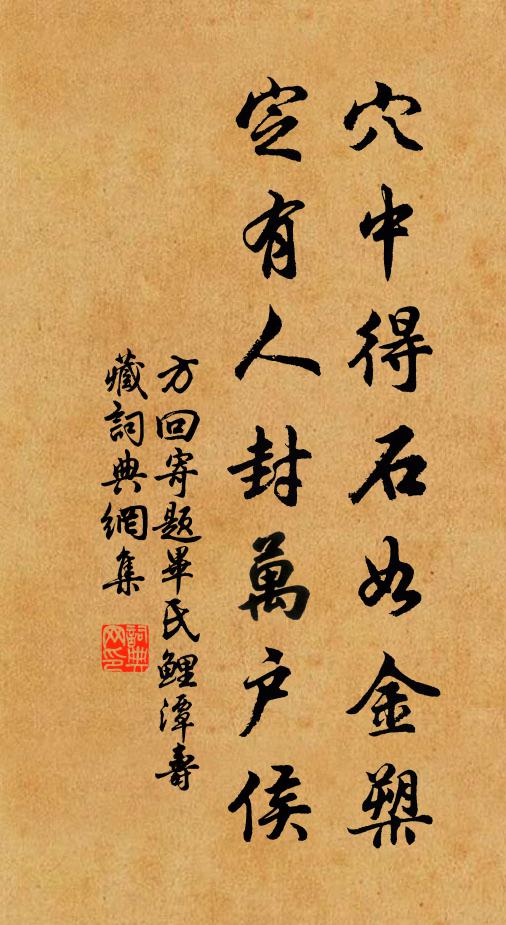 穴中得石如金槊
定有人封萬戶侯
方回寄題畢氏鯉潭壽
藏詞典網集
詞典网印